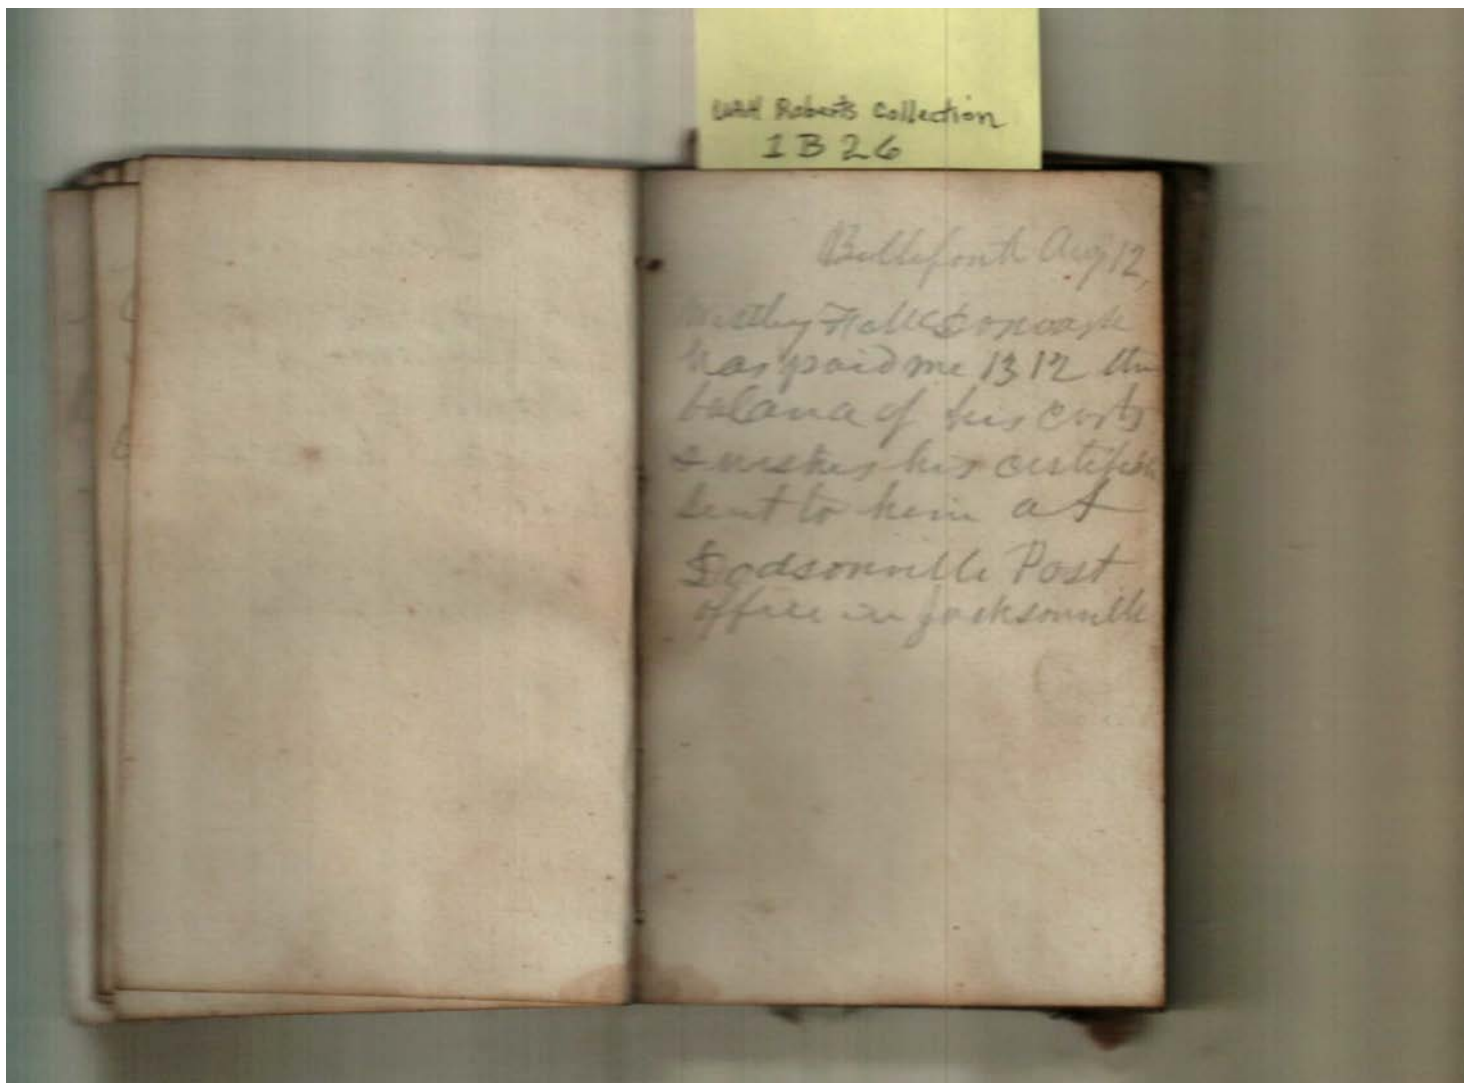 UAH Roberts Collection
1B26
Bellefonte Aug 12,
has paid me 13 12 the
balance of his costs
& wishes his certificate
sent to him at
Dodsonville Post
office in Jacksonville